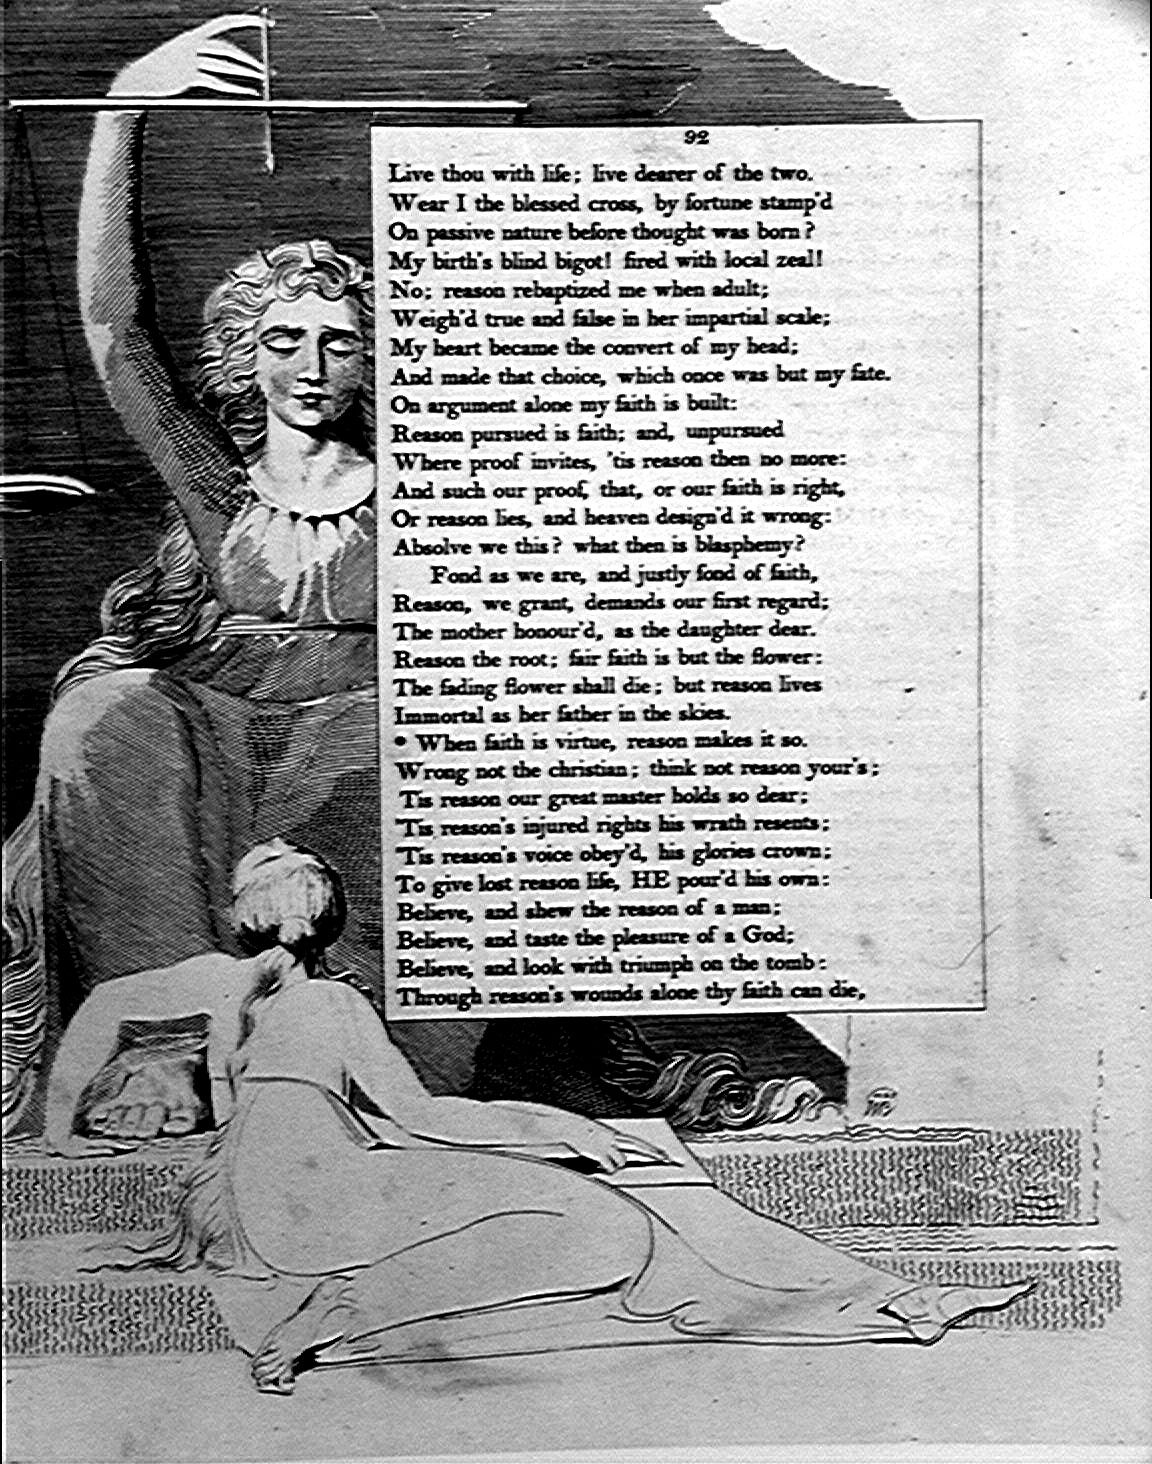 92
Live thou with life; live dearer of the two.
Wear I the blessed cross, by fortune stamp'd
On passive nature before thought was born?
My birth's blind bigot! fired with local zeal!
No; reason rebaptized me when adult;
Weigh'd true and false in her impartial scale;
My heart became the convert of my head;
And made that choice, which once was but my fate.
On argument alone my faith is built:
Reason pursued is faith; and, unpursued
Where proof invites, 'tis reason then no more:
And such our proof, that, or our faith is right,
Or reason lies, and heaven design'd it wrong:
Absolve we this? what then is blasphemy?
Fond as we are, and justly fond of faith,
Reason, we grant, demands our first regard;
The mother honour'd, as the daughter dear.
Reason the root; fair faith is but the flower:
The fading flower shall die; but reason lives
Immortal as her father in the skies.
* When faith is virtue, reason makes it so.
Wrong not the christian; think not reason your's;
'Tis reason our great master holds so dear;
'Tis reason's injured rights his wrath resents;
'Tis reason's voice obey'd, his glories crown;
To give lost reason life, HE pour'd his own:
Believe, and shew the reason of a man;
Believe, and taste the pleasure of a God;
Believe, and look with triumph on the tomb:
Through reason's wounds alone thy faith can die,